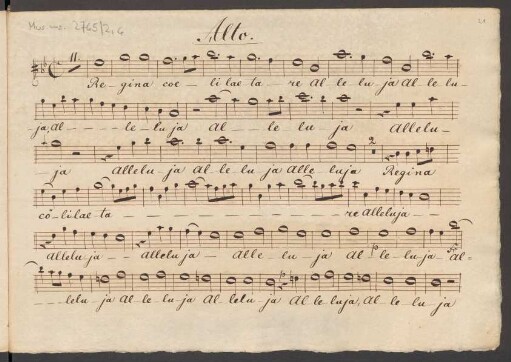 Mus. ms. 2765/2,6
Alto.
Re-gina coe - li lae-ta - re Al-le-lu-ja Al-le lu-
ja, Al - - - le-lu-ja Al - le lu ja Allelu-
ja Allelu-ja Al-le-lu ja Alle luja 2 Regina
cö-li lae-ta- - - - - - - re Alleluja- - -
alleluja - alleluja - alle - lu - ja al p le-lu-ja- al=
- - lelu-ja Al-le-lu-ja Al-lelu-ja Al-le-luja, Al-le-lu-ja